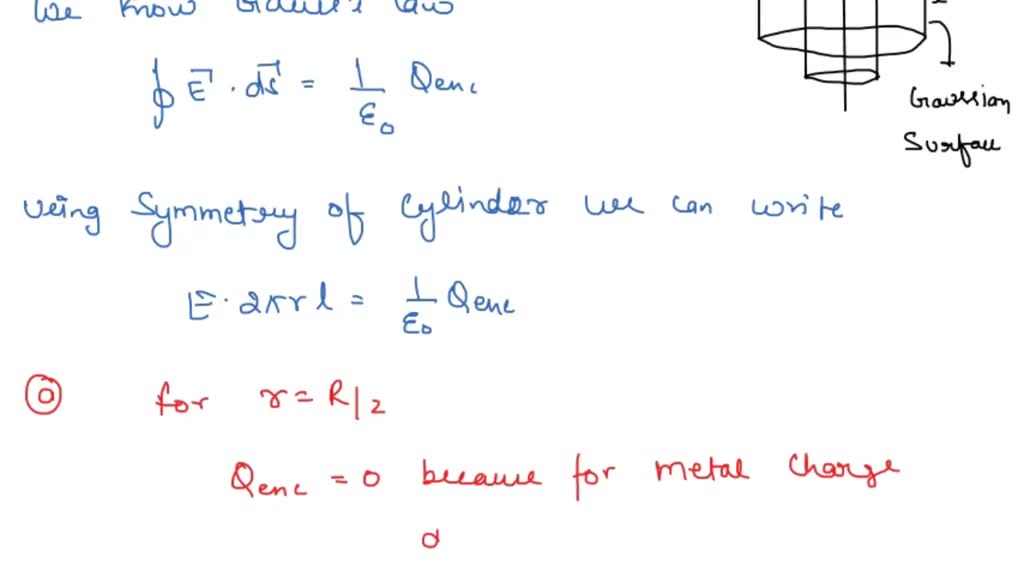 We know Gauss's law
∮ E⃗ · ds⃗ = 1/ε₀ Qenc
Gaussian
Surface
Using Symmetry of Cylinder we can write
E · 2πrl = 1/ε₀ Qenc
ⓐ for r = R/2
Qenc = 0 because for metal charge
d